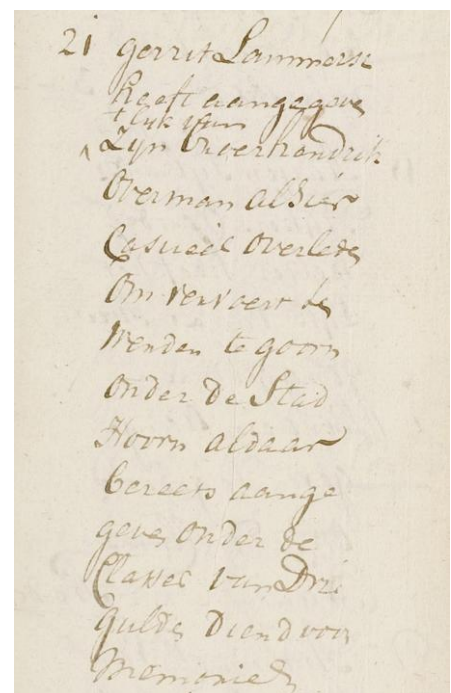 21 gerrit Lammerse
heeft aangegeve
t Lijk van
Zijn broer hendrik
Overman alhier
Casueel overlede
Om vervoert te
Werden te goorn
onder de Stad
Hoorn aldaar
bereets aange
geve onder de
Classes van Drie
gulde Diend voor
memorie